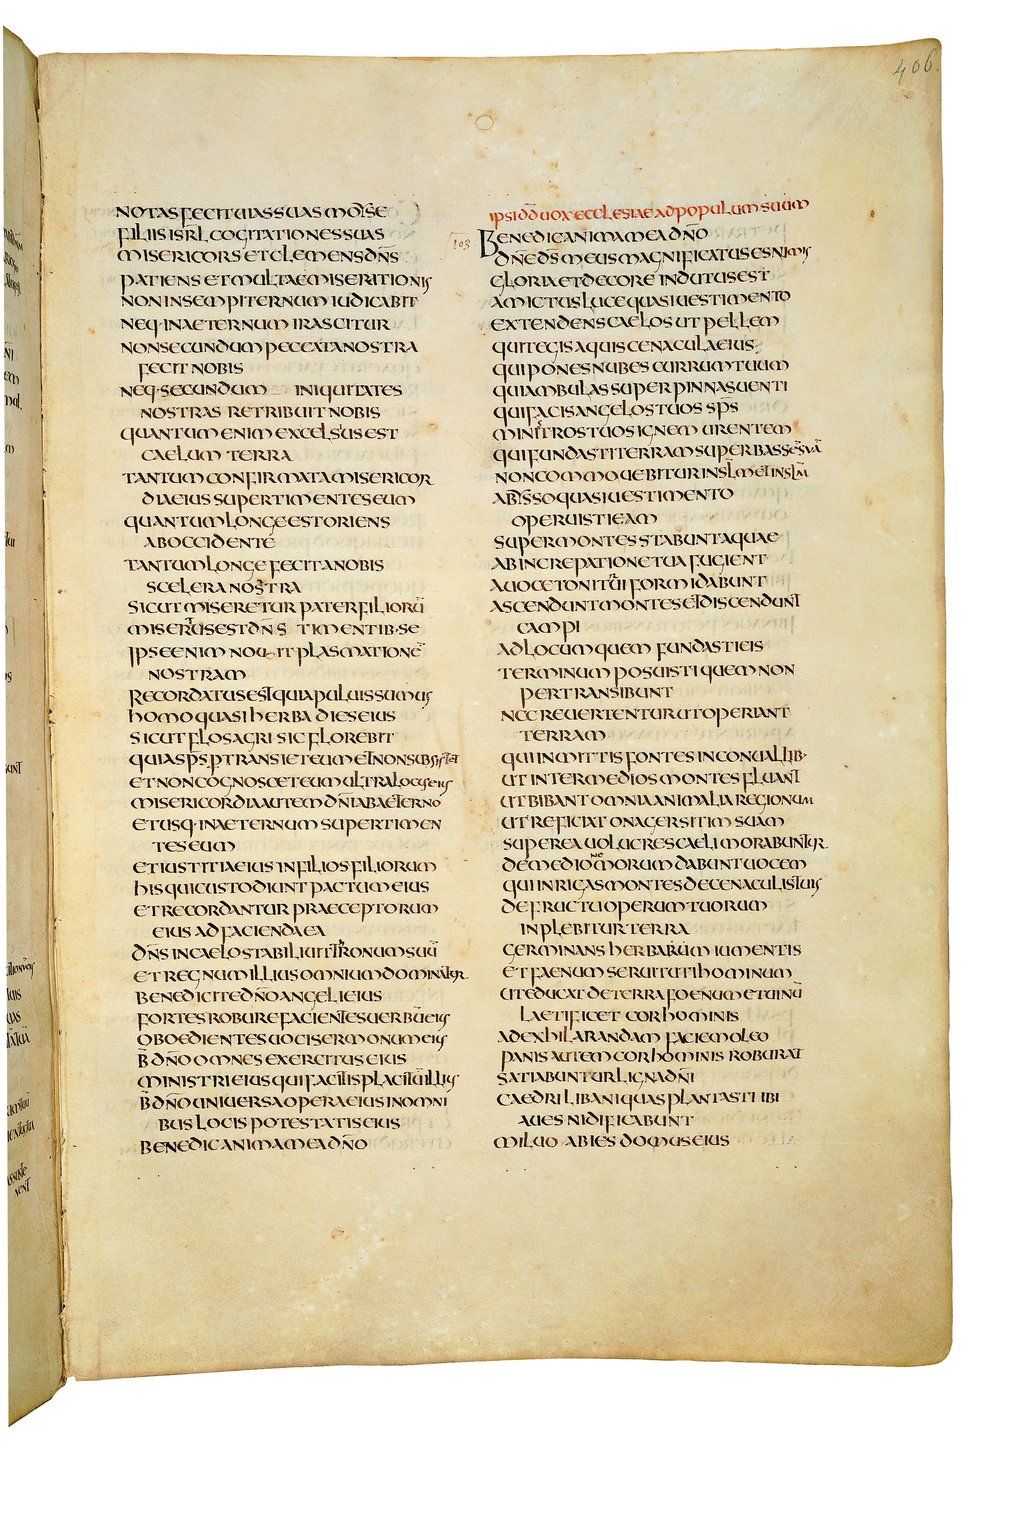 406.
NOTAS FECIT UIAS SUAS MOISE
FILIIS ISRL COGITATIONES SUAS
MISERICORS ET CLEMENS DNS
PATIENS ET MULTAE MISERITIONIS
NON IN SEMPITERNUM IUDICABIT
NEQ· IN AETERNUM IRASCITUR
NON SECUNDUM PECCATA NOSTRA
FECIT NOBIS
NEQ· SECUNDUM INIQUITATES
NOSTRAS RETRIBUIT NOBIS
QUANTUM ENIM EXCELSUS EST
CAELUM TERRA
TANTUM CONFIRMATA MISERICOR
DIA EIUS SUPER TIMENTES EUM
QUANTUM LONGE EST ORIENS
AB OCCIDENTE
TANTUM LONGE FECIT A NOBIS
SCELERA NOSTRA
SICUT MISERETUR PATER FILIORŪ
MISERTUS EST DNS TIMENTIB· SE
IPSE ENIM NOUIT PLASMATIONĒ
NOSTRAM
RECORDATUS EST QUIA PULUIS SUMUS
HOMO QUASI HERBA DIES EIUS
SICUT FLOS AGRI SIC FLOREBIT
QUIA SPS PTRANSIET EUM ET NON SUBSISTET
ET NON COGNOSCET EUM ULTRA LOCUS EIUS
MISERICORDIA AUTEM DNI AB AETERNO
ET USQ· IN AETERNUM SUPER TIMEN
TES EUM
ET IUSTITIA EIUS IN FILIOS FILIORUM
HIS QUI CUSTODIUNT PACTUM EIUS
ET RECORDANTUR PRAECEPTORUM
EIUS AD FACIENDA EA
DNS IN CAELO STABILIUIT THRONUM SUŪ
ET REGNUM ILLIUS OMNIUM DOMINATUR
BENEDICITE DNO ANGELI EIUS
FORTES ROBURE FACIENTES UERBŪ EIUS
OBOEDIENTES UOCI SERMONUM EIUS
B DNO OMNES EXERCITUS EIUS
MINISTRI EIUS QUI FACITIS PLACITŪ ILLIUS
B DNO UNIUERSA OPERA EIUS IN OMNI
BUS LOCIS POTESTATIS EIUS
BENEDIC ANIMA MEA DNO
IPSI DD UOX ECCLESIAE AD POPULUM SUUM
103 BENEDIC ANIMA MEA DNO
DNE DS MEUS MAGNIFICATUS ES NIMIS
GLORIA ET DECORE INDUTUS EST
AMICTUS LUCE QUASI UESTIMENTO
EXTENDENS CAELOS UT PELLEM
QUI TEGIS AQUIS CENACULA EIUS
QUI PONES NUBES CURRUM TUUM
QUI AMBULAS SUPER PINNAS UENTI
QUI FACIS ANGELOS TUOS SPS
MINITROS TUOS IGNEM URENTEM
QUI FUNDASTI TERRAM SUPER BASSES SUĀ
NON COMMOUEBITUR IN SLM ET IN SLM
ABISSO QUASI UESTIMENTO
OPERUISTI EAM
SUPER MONTES STABUNT AQUAE
AB INCREPATIONE TUA FUGIENT
A UOCE TONITRUI FORMIDABUNT
ASCENDUNT MONTES ET DISCENDUNT
CAMPI
AD LOCUM QUEM FUNDASTI EIS
TERMINUM POSUISTI QUEM NON
PERTRANSIBUNT
NEC REUERTENTUR UT OPERIANT
TERRAM
QUI INMITTIS FONTES IN CONUALLIB·
UT INTER MEDIOS MONTES FLUANT
UT BIBANT OMNIA ANIMALIA REGIONUM
UT REFICIAT ONAGER SITIM SUAM
SUPER EA UOLUCRES CAELI MORABUNTUR
DE MEDIO NEMORUM DABUNT UOCEM
QUI INRIGAS MONTES DE CENACULIS TUIS
DE FRUCTU OPERUM TUORUM
INPLEBITUR TERRA
GERMINANS HERBARUM IUMENTIS
ET FAENUM SERUITUTI HOMINUM
UT EDUCAT DE TERRA FOENUM ET UINŪ
LAETIFICET COR HOMINIS
AD EXHILARANDAM FACIEM OLEO
PANIS AUTEM COR HOMINIS ROBURAT
SATIABUNTUR LIGNA DNI
CAEDRI LIBANI QUAS PLANTASTI IBI
AUES NIDIFICABUNT
MILUO ABIES DOMUS EIUS